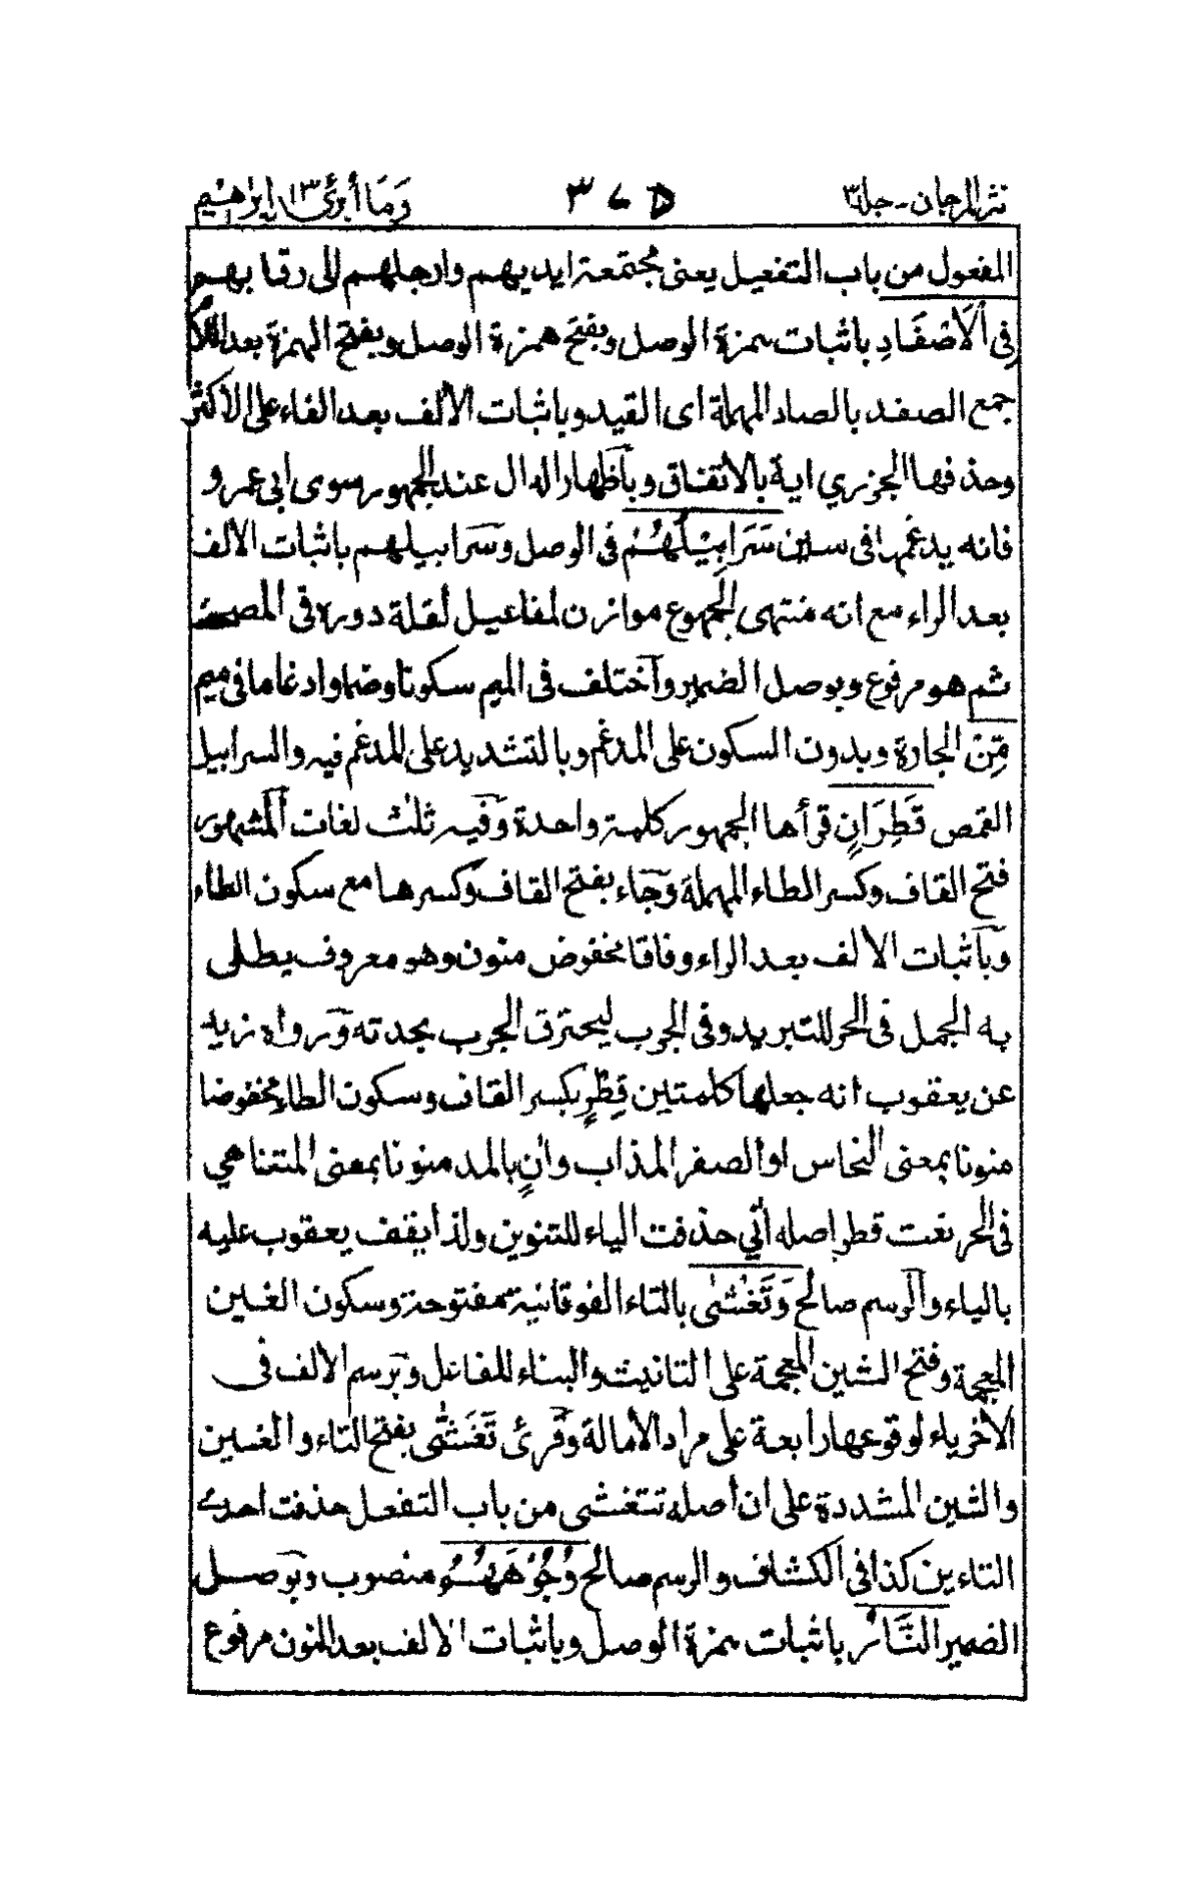 نثر المرجان - جلد٣ ٣٧٥ وَمَا أُبَرِّئُ ١٣ إبراهيم
المفعول من باب التفعيل يعنى مجتمعة ايديهم وارجلهم الى رقابهم
فى اَلْاَصْفَادِ باثبات همزة الوصل وبفتح همزة الوصل وبفتح الهمزة بعد
جمع الصفد بالصاد المهملة اى القيد وباثبات الألف بعد الفاء على الأكثر
وحذفها الجزري اية بالاتفاق وبأظهار الدال عند الجمهور سوى ابى عمرو
فانه يدغمها فى سين سَرَابِيْلُهُمْ فى الوصل وسرابيلهم باثبات الالف
بعد الراء مع انه منتهى الجموع موازن لمفاعيل لقلة دوره فى المصحف
ثم هو مرفوع وبوصل الضمير وآختلف فى الميم سكونا وضما وادغاما فى ميم
مِّنْ الجارة وبدون السكون على المدغم وبالتشديد على المدغم فيه والسرابيل
القمص قَطِرَانٍ قرأها الجمهور كلمة واحدة وَفيه ثلث لغات اَلمشهور
فتح القاف وكسر الطاء المهملة وَجاء بفتح القاف وكسرها مع سكون الطاء
وَبآثبات الالف بعد الراء وفاقا مخفوض منون وهو معروف يطلى
به الجمل فى الحر للتبريد وفى الجرب ليحترق الجرب بحدته وَرواه زيد
عن يعقوب انه جعلها كلمتين قِطْرٍ بكسر القاف وسكون الطاء مخفوضا
منونا بمعنى النحاس او الصفر المذاب وانٍ بالمد منونا بمعنى المتناهي
فى الحر نعت قطر اصله أني حذفت الياء للتنوين ولذا يقف يعقوب عليه
بالياء واَلرسم صالح وَتَغْشٰى بالتاء الفوقانية مفتوحة وسكون الغين
المعجمة وفتح الشين المعجمة على التانيث والبناء للفاعل وبَرسم الالف فى
الأخر ياء لوقوعها رابعة على مراد الأمالة وَقرئ تَغَشّٰى بفتح التاء والغين
والشين المشددة على ان أصله تتغشى من باب التفعل حذفت احدى
التاءين كذا فى الكشاف والرسم صالح وُجُوْهَهُمُ منصوب وبَوصل
الضمير النَّارُ باثبات همزة الوصل وباثبات الالف بعد النون مرفوع